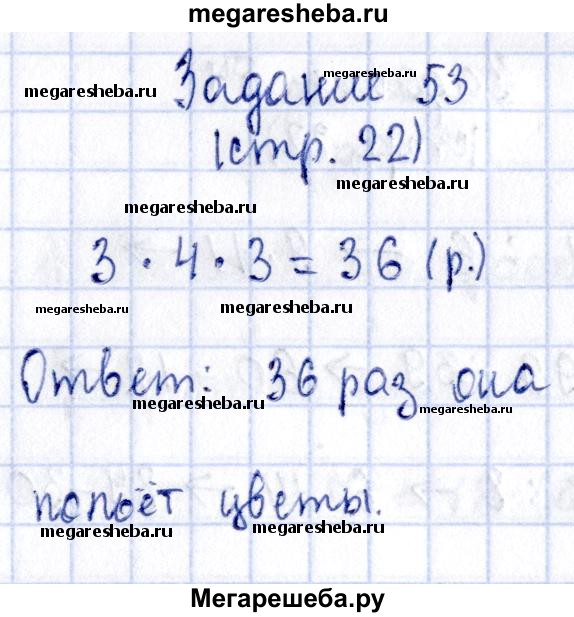 megaresheba.ru
megaresheba.ru
megaresheba.ru
Задание 53
(стр. 22)
megaresheba.ru
megaresheba.ru
3 · 4 · 3 = 36 (р.)
megaresheba.ru
megaresheba.ru
Ответ: 36 раз она
megaresheba.ru
megaresheba.ru
польёт цветы.
megaresheba.ru
megaresheba.ru
Мегарешеба.ру